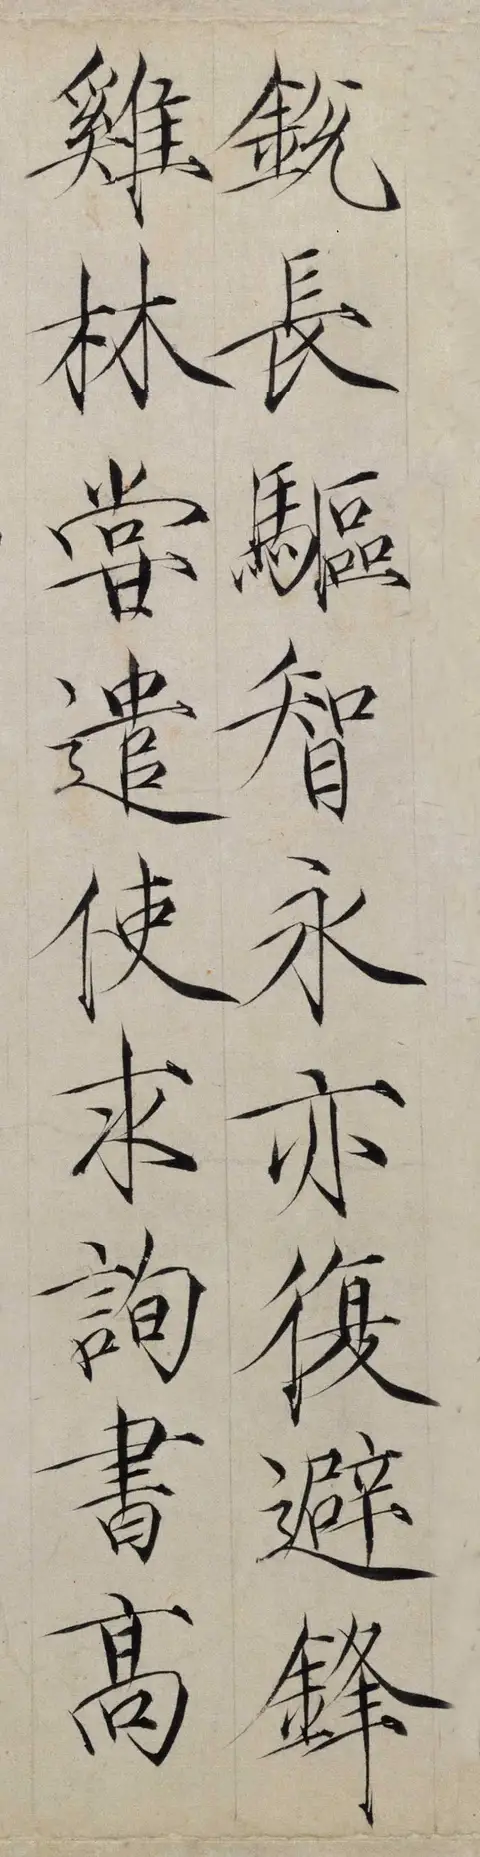 銳長驅智永亦復避鋒
雞林嘗遣使求詢書高